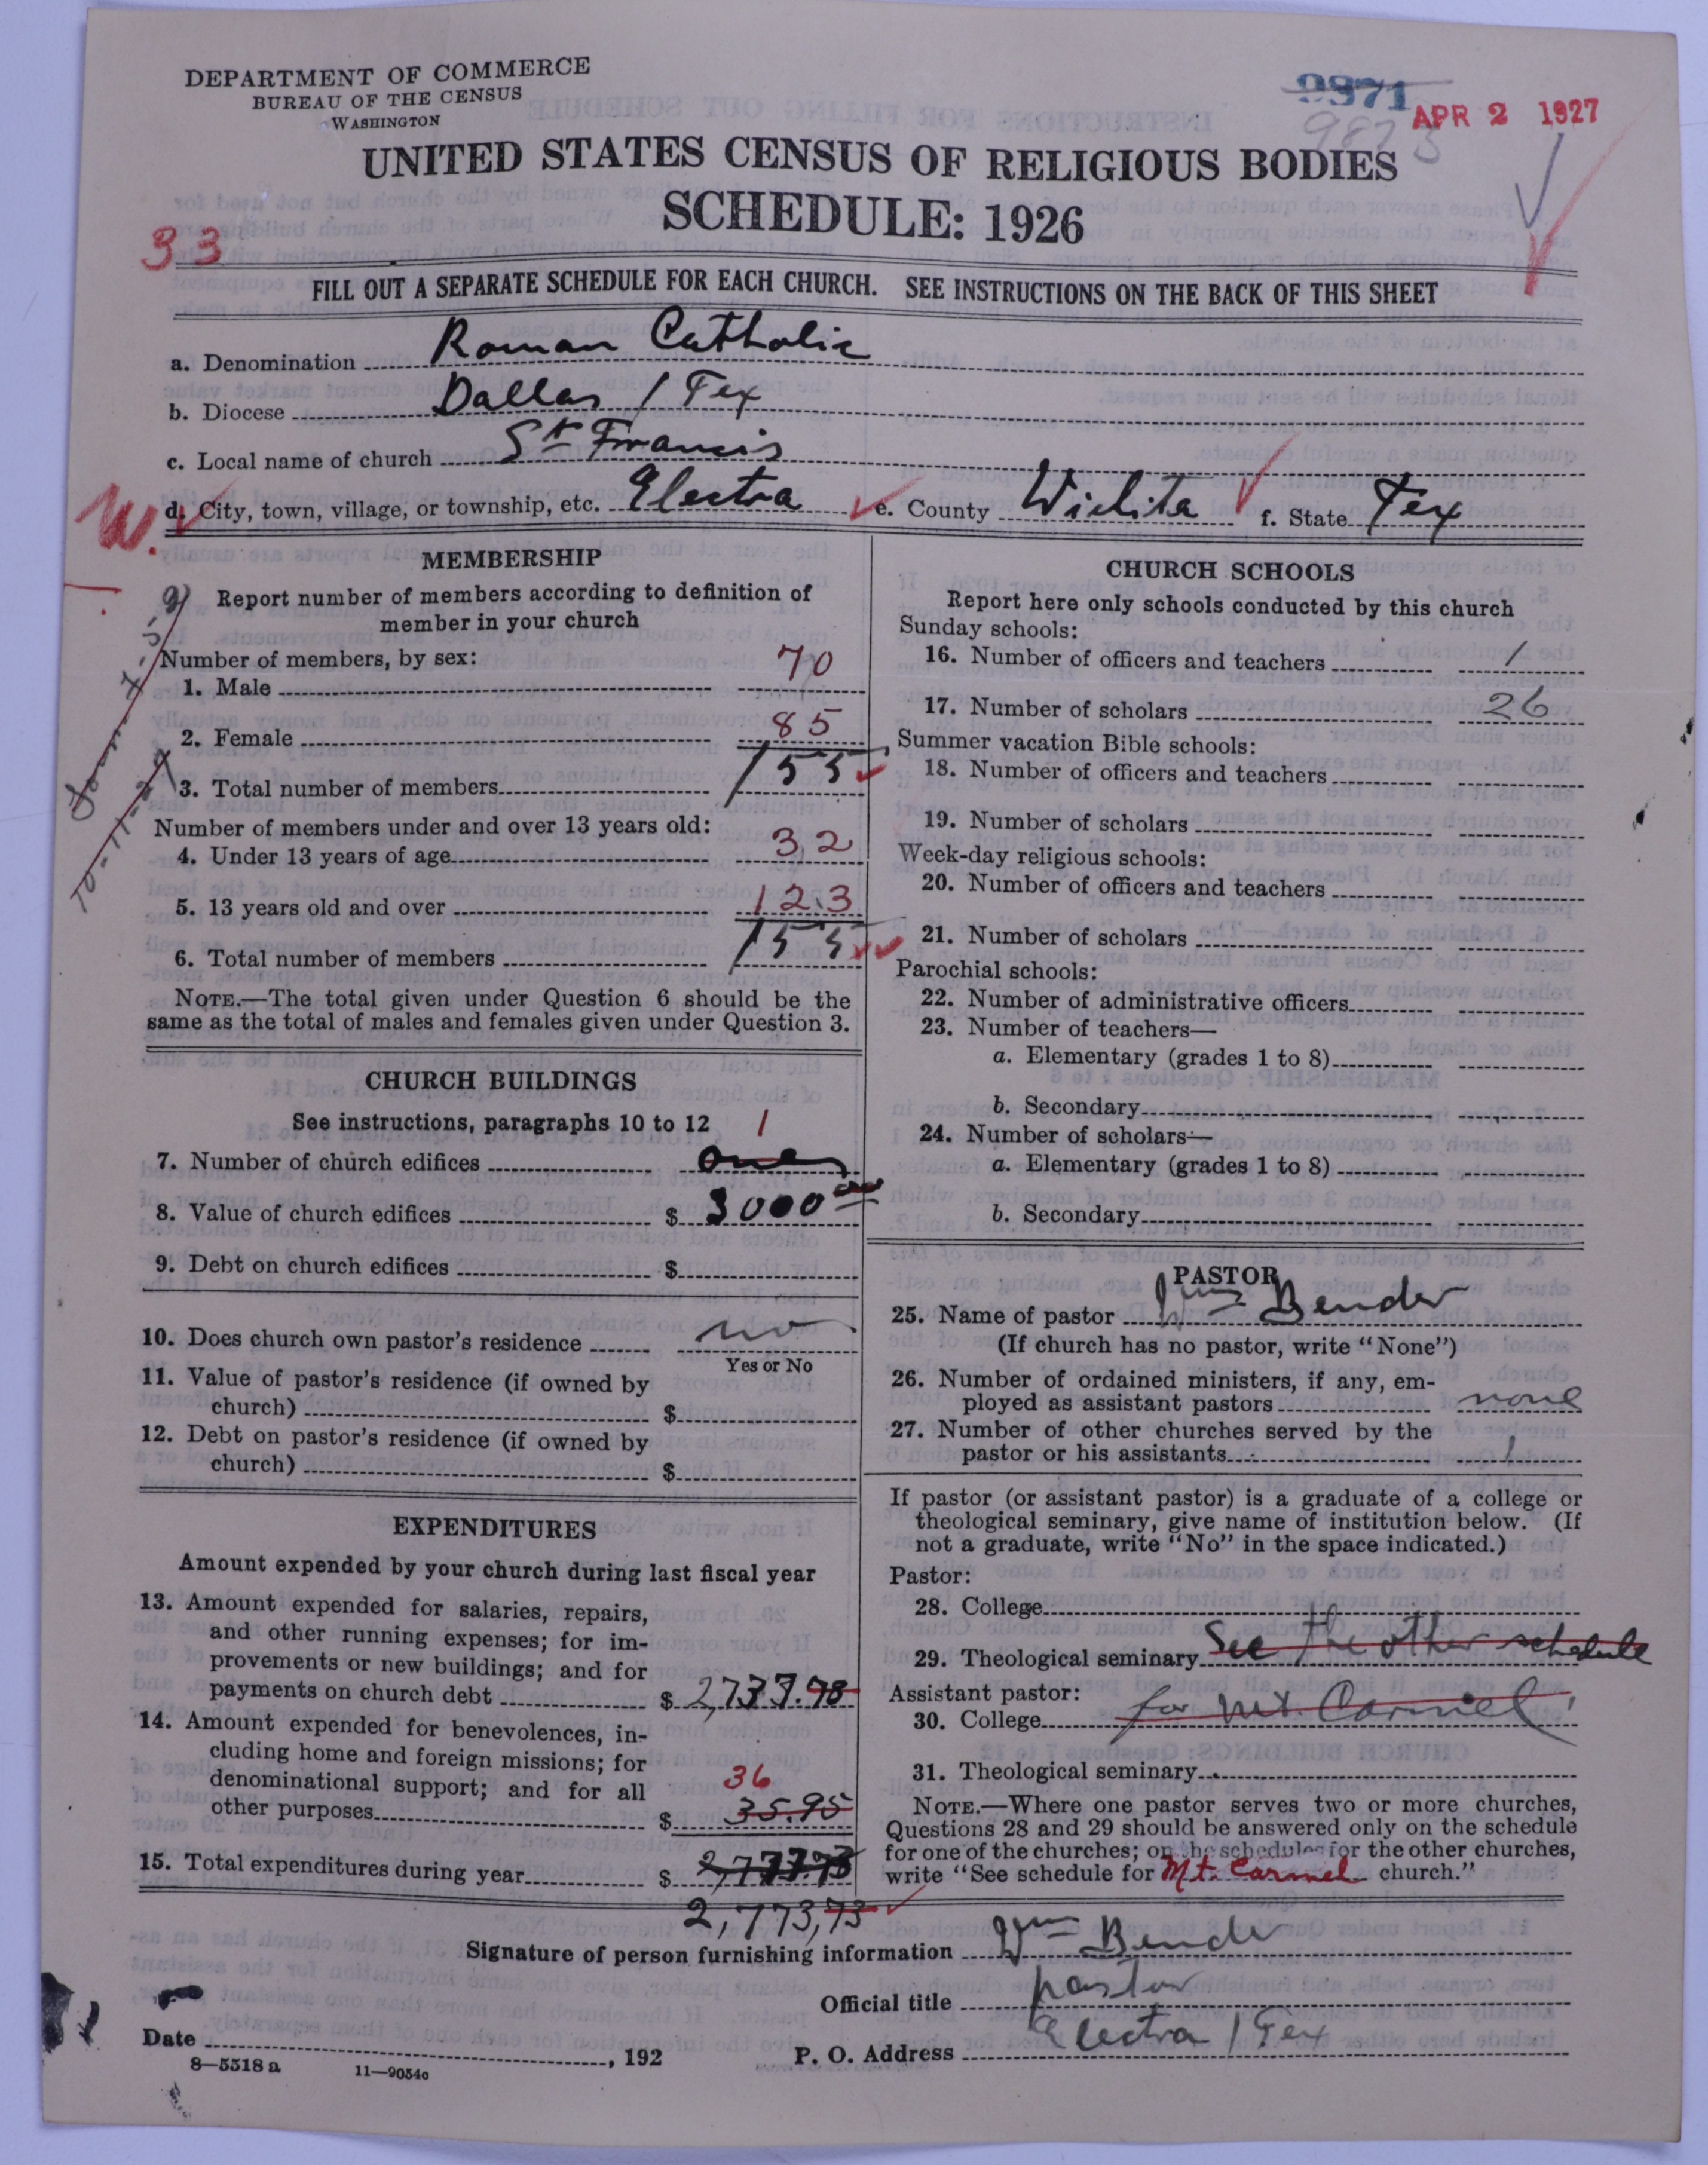 DEPARTMENT OF COMMERCE
BUREAU OF THE CENSUS
WASHINGTON
9871
APR 2 1927
9823
UNITED STATES CENSUS OF RELIGIOUS BODIES
SCHEDULE: 1926
33
FILL OUT A SEPARATE SCHEDULE FOR EACH CHURCH. SEE INSTRUCTIONS ON THE BACK OF THIS SHEET
a. Denomination Roman Catholic
b. Diocese Dallas / Tex
c. Local name of church St Francis
W. d. City, town, village, or township, etc. Electra e. County Wichita f. State Tex
MEMBERSHIP
Report number of members according to definition of
member in your church
Number of members, by sex:
1. Male 70
2. Female 85
3. Total number of members 155
Number of members under and over 13 years old:
4. Under 13 years of age 32
5. 13 years old and over 123
6. Total number of members 155
NOTE.—The total given under Question 6 should be the
same as the total of males and females given under Question 3.
CHURCH BUILDINGS
See instructions, paragraphs 10 to 12
1
7. Number of church edifices one
8. Value of church edifices $ 3000 00
9. Debt on church edifices $
10. Does church own pastor's residence no
Yes or No
11. Value of pastor's residence (if owned by
church) $
12. Debt on pastor's residence (if owned by
church) $
EXPENDITURES
Amount expended by your church during last fiscal year
13. Amount expended for salaries, repairs,
and other running expenses; for im-
provements or new buildings; and for
payments on church debt $ 2,737.78
14. Amount expended for benevolences, in-
cluding home and foreign missions; for
denominational support; and for all
36
other purposes $ 35.95
15. Total expenditures during year $ 2,773.73
2,773,73
CHURCH SCHOOLS
Report here only schools conducted by this church
Sunday schools:
16. Number of officers and teachers 1
17. Number of scholars 26
Summer vacation Bible schools:
18. Number of officers and teachers
19. Number of scholars
Week-day religious schools:
20. Number of officers and teachers
21. Number of scholars
Parochial schools:
22. Number of administrative officers
23. Number of teachers—
a. Elementary (grades 1 to 8)
b. Secondary
24. Number of scholars—
a. Elementary (grades 1 to 8)
b. Secondary
PASTOR
25. Name of pastor Wm Bender
(If church has no pastor, write "None")
26. Number of ordained ministers, if any, em-
ployed as assistant pastors none
27. Number of other churches served by the
pastor or his assistants 1
If pastor (or assistant pastor) is a graduate of a college or
theological seminary, give name of institution below. (If
not a graduate, write "No" in the space indicated.)
Pastor:
28. College
29. Theological seminary See the other schedule
Assistant pastor:
30. College for Mt. Carmel
31. Theological seminary
NOTE.—Where one pastor serves two or more churches,
Questions 28 and 29 should be answered only on the schedule
for one of the churches; on the schedules for the other churches,
write "See schedule for Mt. Carmel church."
Signature of person furnishing information Wm Bender
Official title pastor
Date , 192
P. O. Address Electra / Tex
8—5518 a 11—9054c